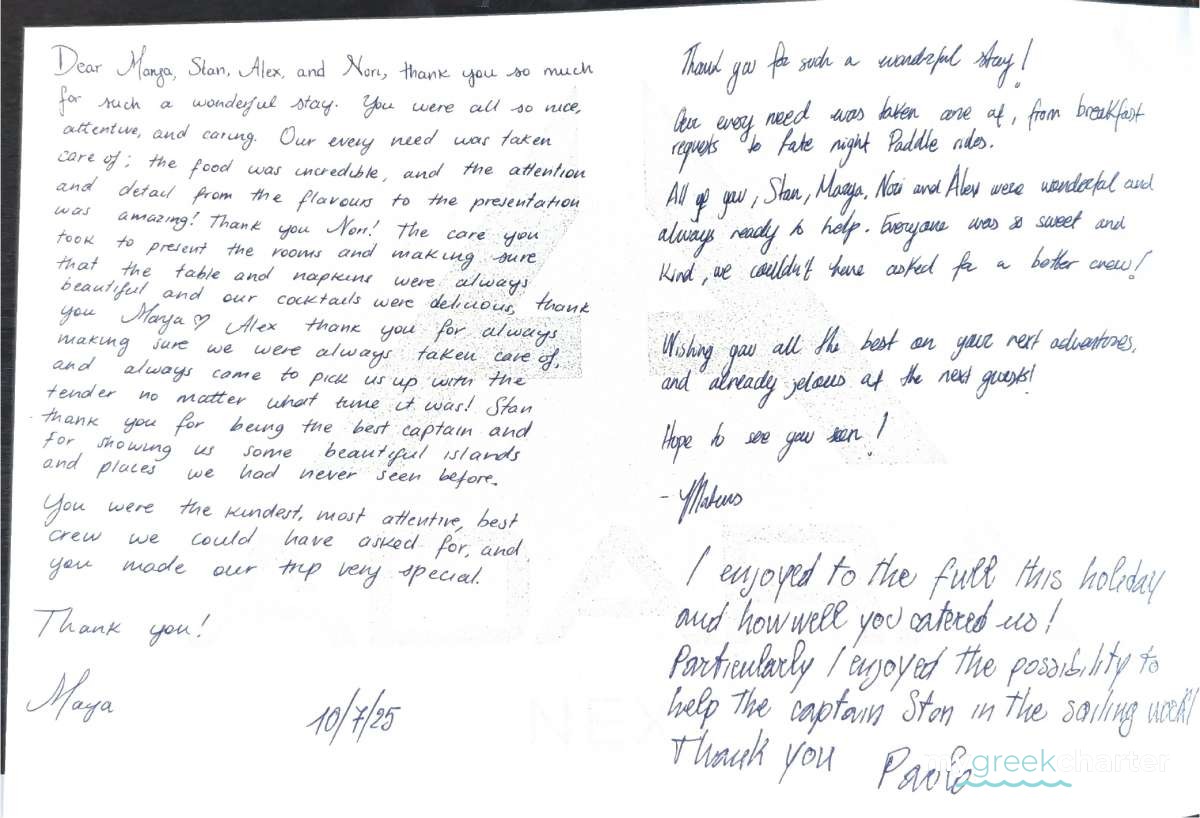 Dear Marya, Stan, Alex, and Nori, thank you so much
for such a wonderful stay. You were all so nice,
attentive, and caring. Our every need was taken
care of; the food was incredible, and the attention
and detail from the flavours to the presentation
was amazing! Thank you Nori! The care you
took to present the rooms and making sure
that the table and napkins were always
beautiful and our cocktails were delicious, thank
you Marya♡ Alex thank you for always
making sure we were always taken care of,
and always came to pick us up with the
tender no matter what time it was! Stan
thank you for being the best captain and
for showing us some beautiful islands
and places we had never seen before.
You were the kindest, most attentive, best
crew we could have asked for, and
you made our trip very special.
Thank you!
Maya
10/7/25
Thank you for such a wonderful stay!
Our every need was taken care of, from breakfast
requests to late night Paddle rides.
All of you, Stan, Marya, Nori and Alex were wonderful and
always ready to help. Everyone was so sweet and
kind, we couldn't have asked for a better crew!
Wishing you all the best on your next adventures,
and already jelous of the next guests!
Hope to see you soon!
I enjoyed to the full this holiday
and how well you catered us!
Particularly I enjoyed the possibility to
help the captain Stan in the sailing work!
Thank you
Paolo
NEX
mygreekcharter